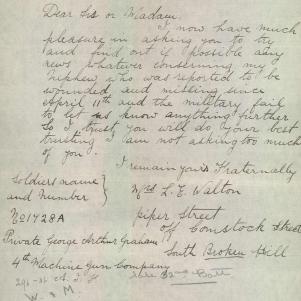 Dear Sir or Madam.
I now have much
pleasure in asking you to try
and find out if possible any
news whatever concerning my
Nephew who was reported to be
wounded and missing since
April 11th and the military fail
to let us know anything further
so I trust you will do your best
trusting I am not asking too much
of you.
I remain yours Fraternally
Soldiers name }
and Number
Mrs L. E. Walton
Piper Street
No 1728A
off Comstock Street
Private George Arthur Graham
South Broken Hill
4th Machine Gun Company
A. I. F
W. & M.